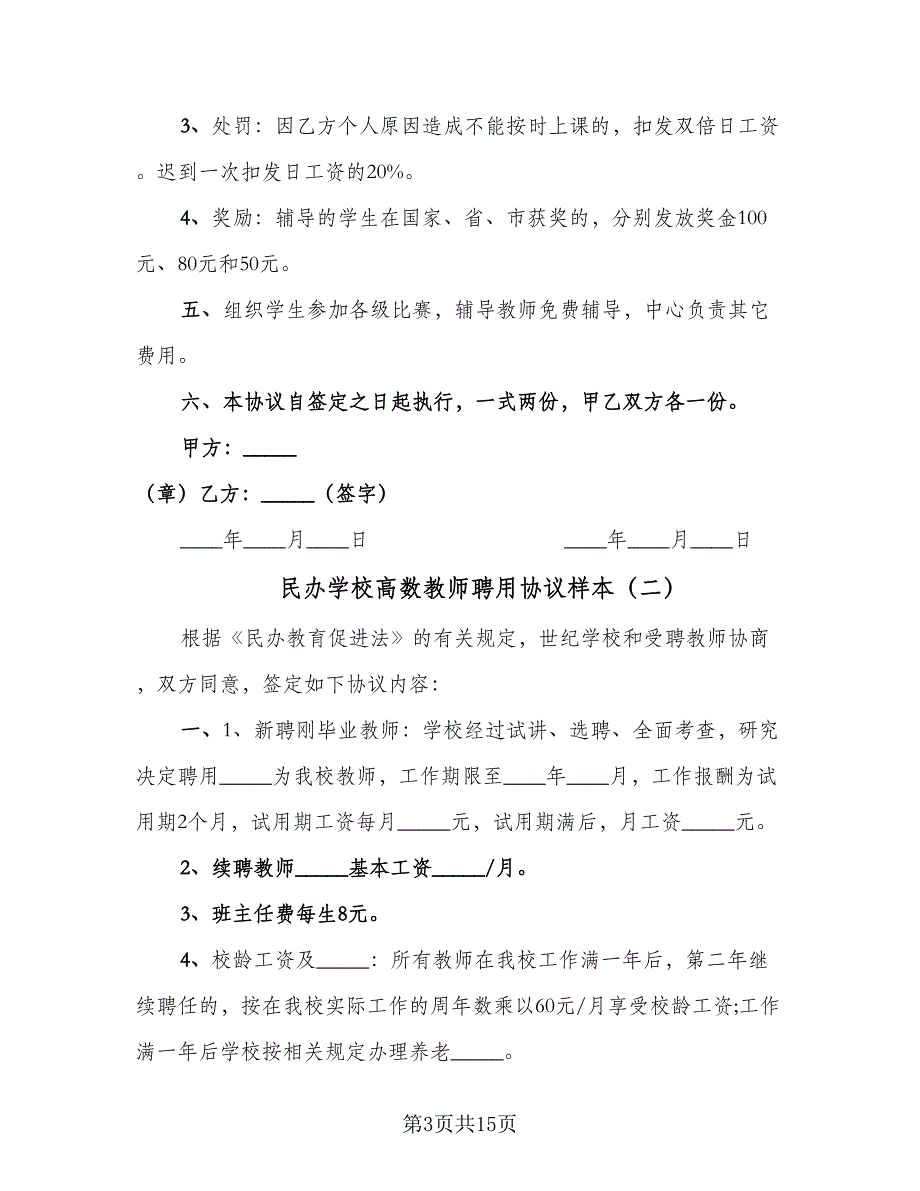 3、处罚：因乙方个人原因造成不能按时上课的，扣发双倍日工资
。迟到一次扣发日工资的20%。
4、奖励：辅导的学生在国家、省、市获奖的，分别发放奖金100
元、80元和50元。
五、组织学生参加各级比赛，辅导教师免费辅导，中心负责其它
费用。
六、本协议自签定之日起执行，一式两份，甲乙双方各一份。
甲方：_____
（章）乙方：_____（签字）
____年____月____日 ____年____月____日
民办学校高数教师聘用协议样本（二）
根据《民办教育促进法》的有关规定，世纪学校和受聘教师协商
，双方同意，签定如下协议内容：
一、1、新聘刚毕业教师：学校经过试讲、选聘、全面考查，研究
决定聘用_____为我校教师，工作期限至____年____月，工作报酬为试
用期2个月，试用期工资每月_____元，试用期满后，月工资_____元。
2、续聘教师_____基本工资_____/月。
3、班主任费每生8元。
4、校龄工资及_____：所有教师在我校工作满一年后，第二年继
续聘任的，按在我校实际工作的周年数乘以60元/月享受校龄工资;工作
满一年后学校按相关规定办理养老_____。
第3页共15页